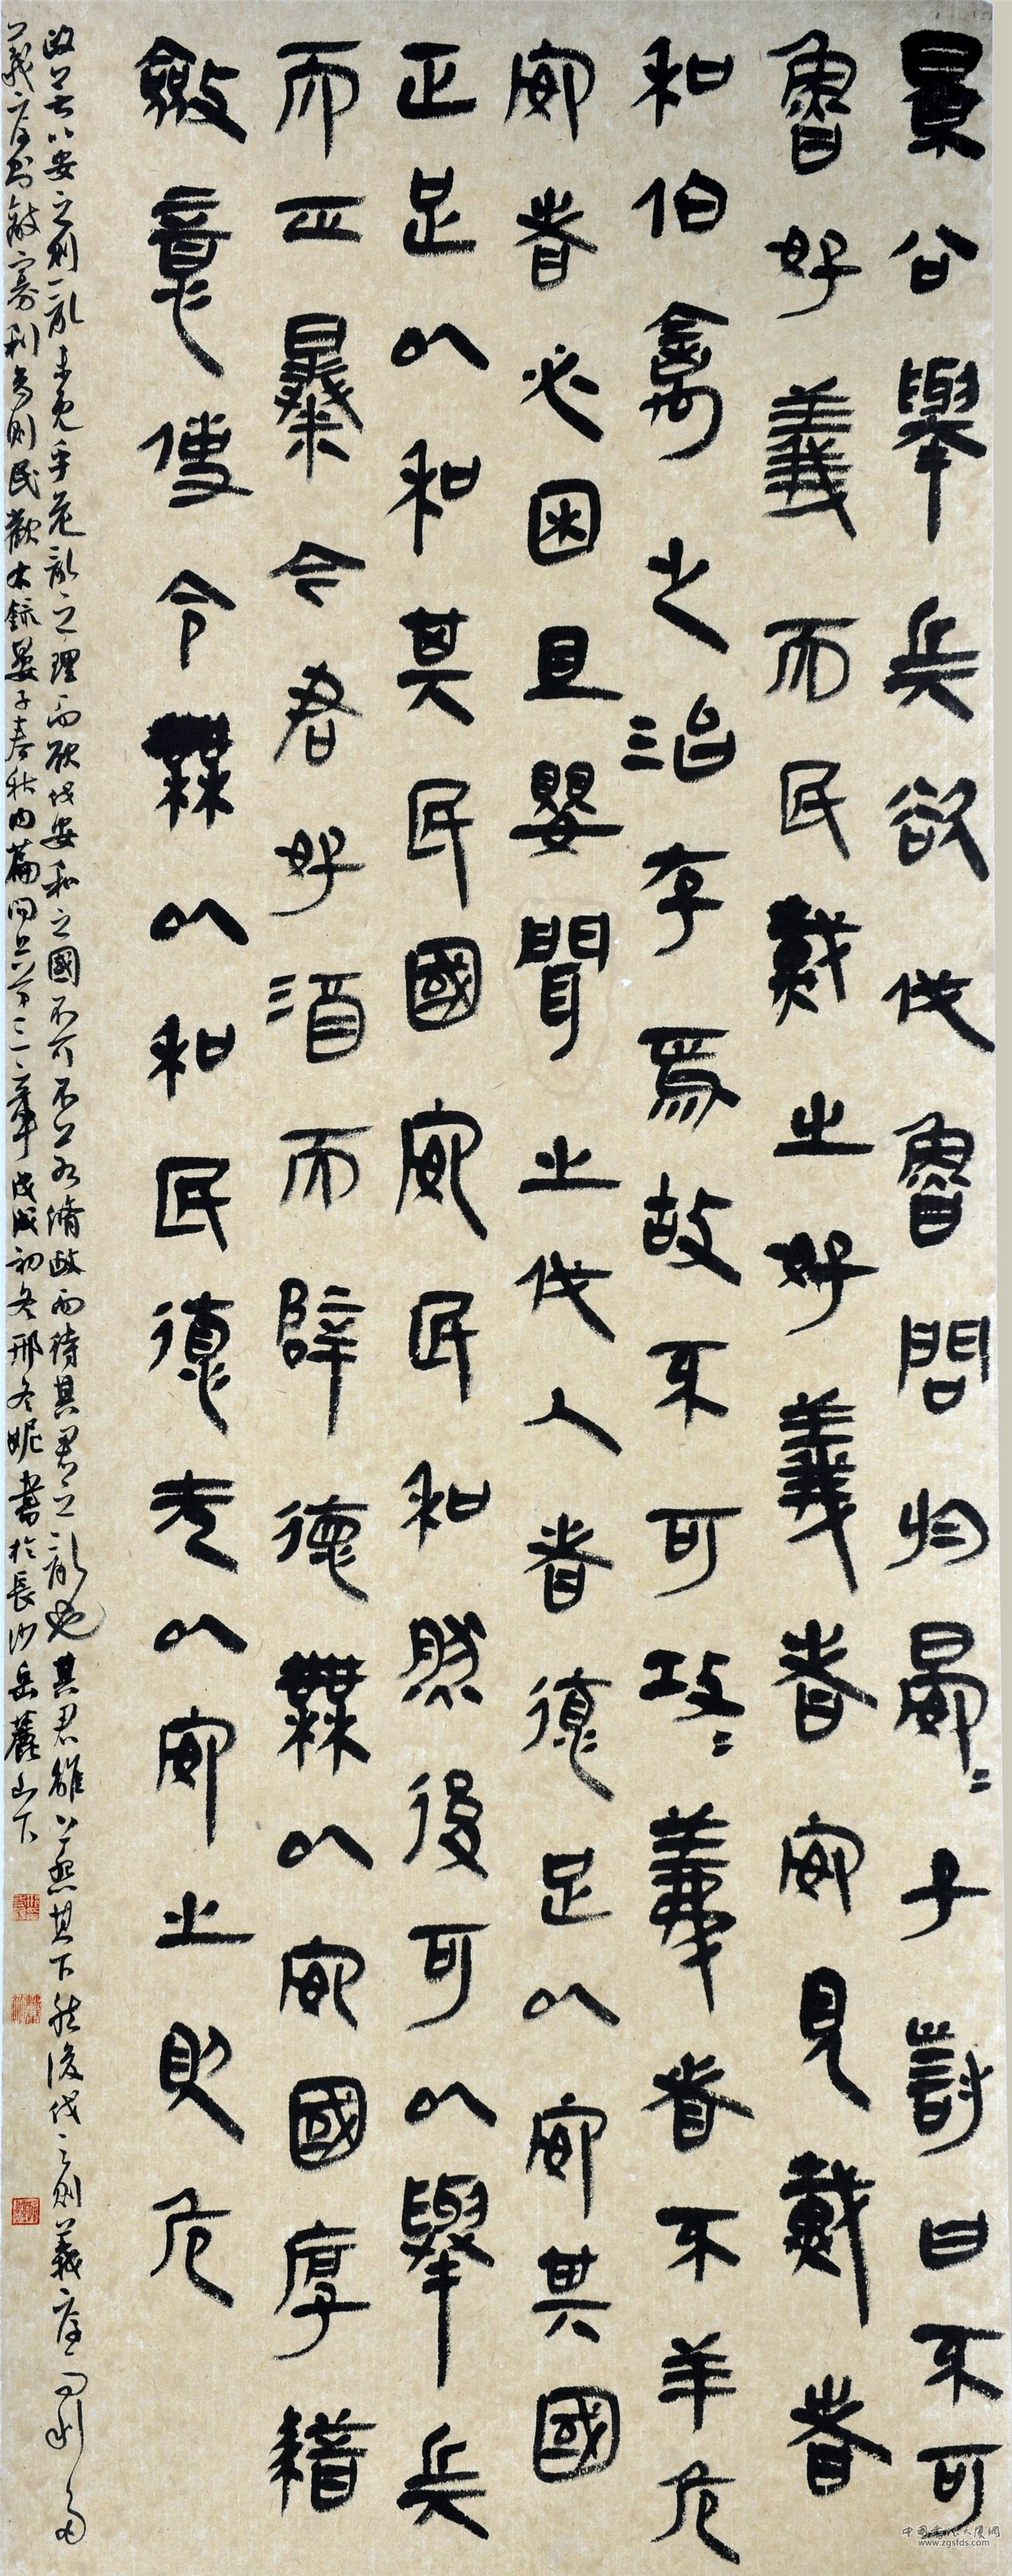 景公舉兵欲伐魯問於晏=子對曰不可
魯好義而民戴之好義者安見戴者
和伯禽之治存焉故不可攻=義者不羊危
安者必困且嬰聞之伐人者德足以安其國
正足以和其民國安民和然後可以舉兵
而正暴今君好酒而辟德無以安國厚藉
斂意使令無以和民德无以安之則危
政无以和之則亂未免乎危亂之理而欲伐安和之國不可不若脩政而待其君之亂也其君離上怨其下然後伐之則義厚而利多
義厚則敵寡利多則民歡右錄晏子春秋內篇問上第三章戊戌初冬邢冬妮書於長沙岳麓山下
中国书法大厦网
www.zgsfds.com